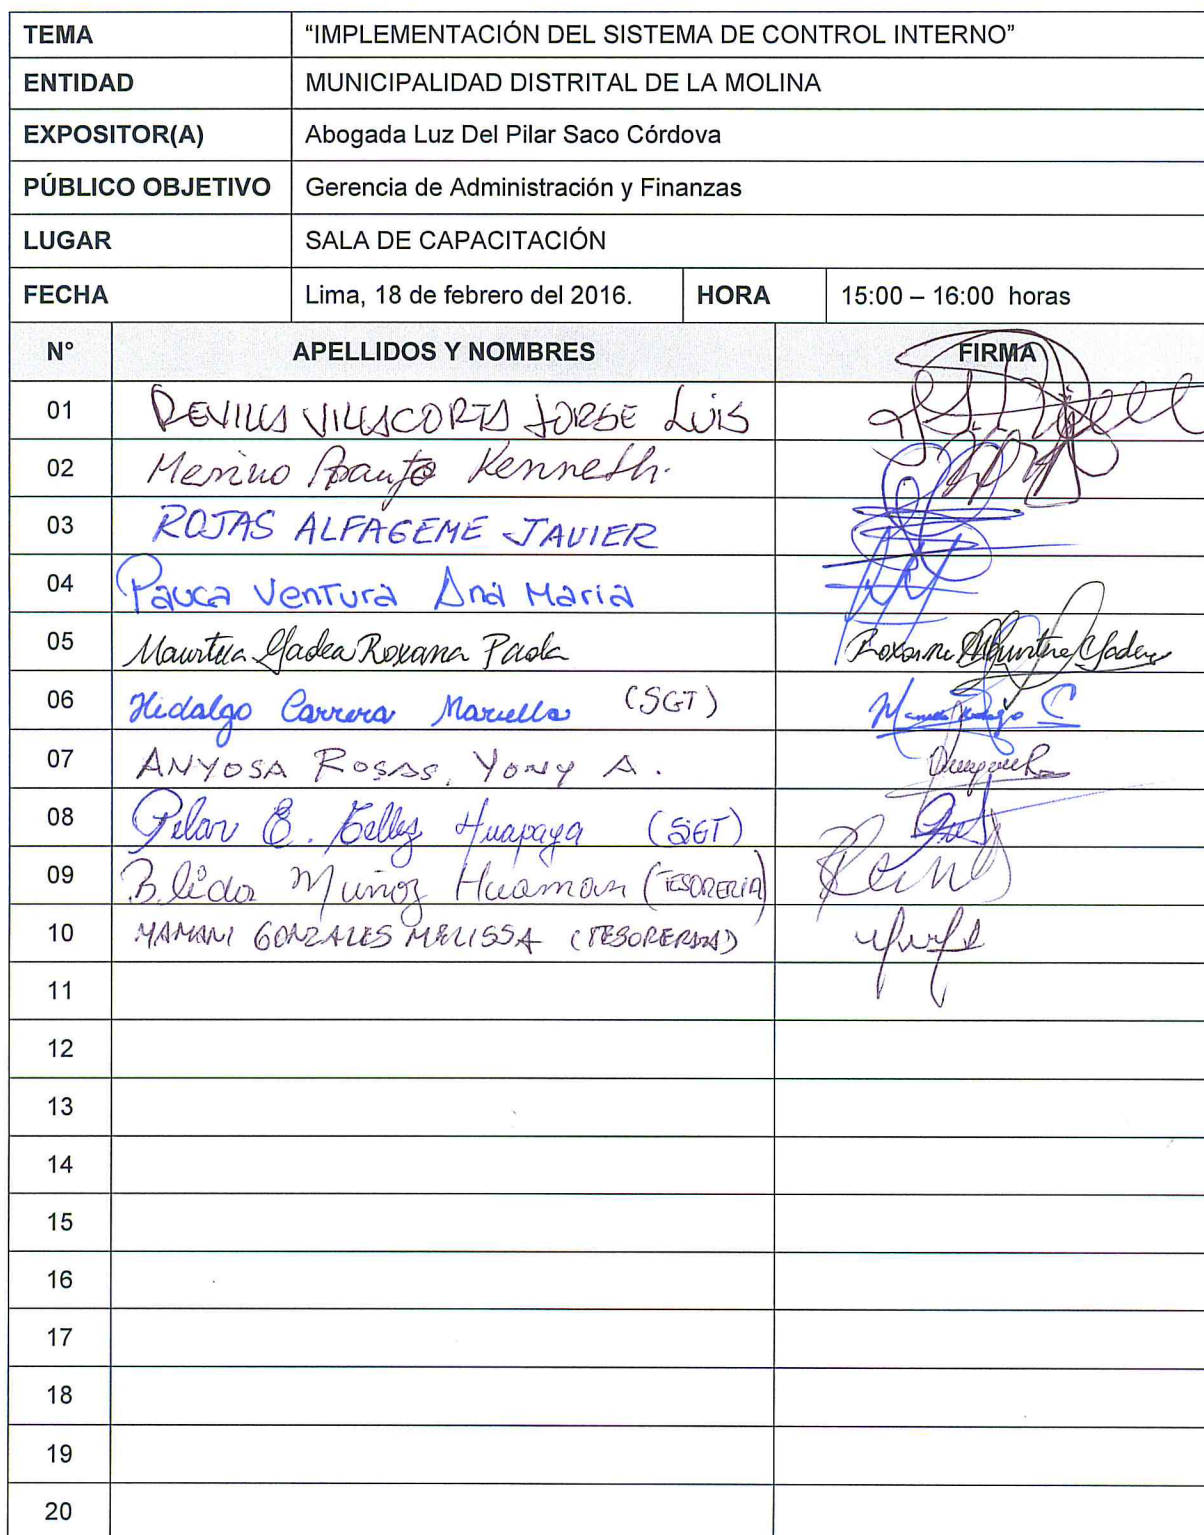 TEMA “IMPLEMENTACIÓN DEL SISTEMA DE CONTROL INTERNO”
ENTIDAD MUNICIPALIDAD DISTRITAL DE LA MOLINA
EXPOSITOR(A) Abogada Luz Del Pilar Saco Córdova
PÚBLICO OBJETIVO Gerencia de Administración y Finanzas
LUGAR SALA DE CAPACITACIÓN
FECHA Lima, 18 de febrero del 2016. HORA 15:00 – 16:00 horas
N° APELLIDOS Y NOMBRES FIRMA
01 REVILLA VILLACORTA JORGE LUIS
02 Merino Araujo Kenneth.
03 ROJAS ALFAGEME JAVIER
04 Pauca Ventura Ana Maria
05 Maurtua Gadea Roxana Paola
06 Hidalgo Carrera Mariella (SGT)
07 ANYOSA ROSAS, YONY A.
08 Pilar E. Telles Huapaya (SGT)
09 Blida Muñoz Huaman (TESORERIA)
10 MAMANI GONZALES MELISSA (TESORERIA)
11
12
13
14
15
16
17
18
19
20